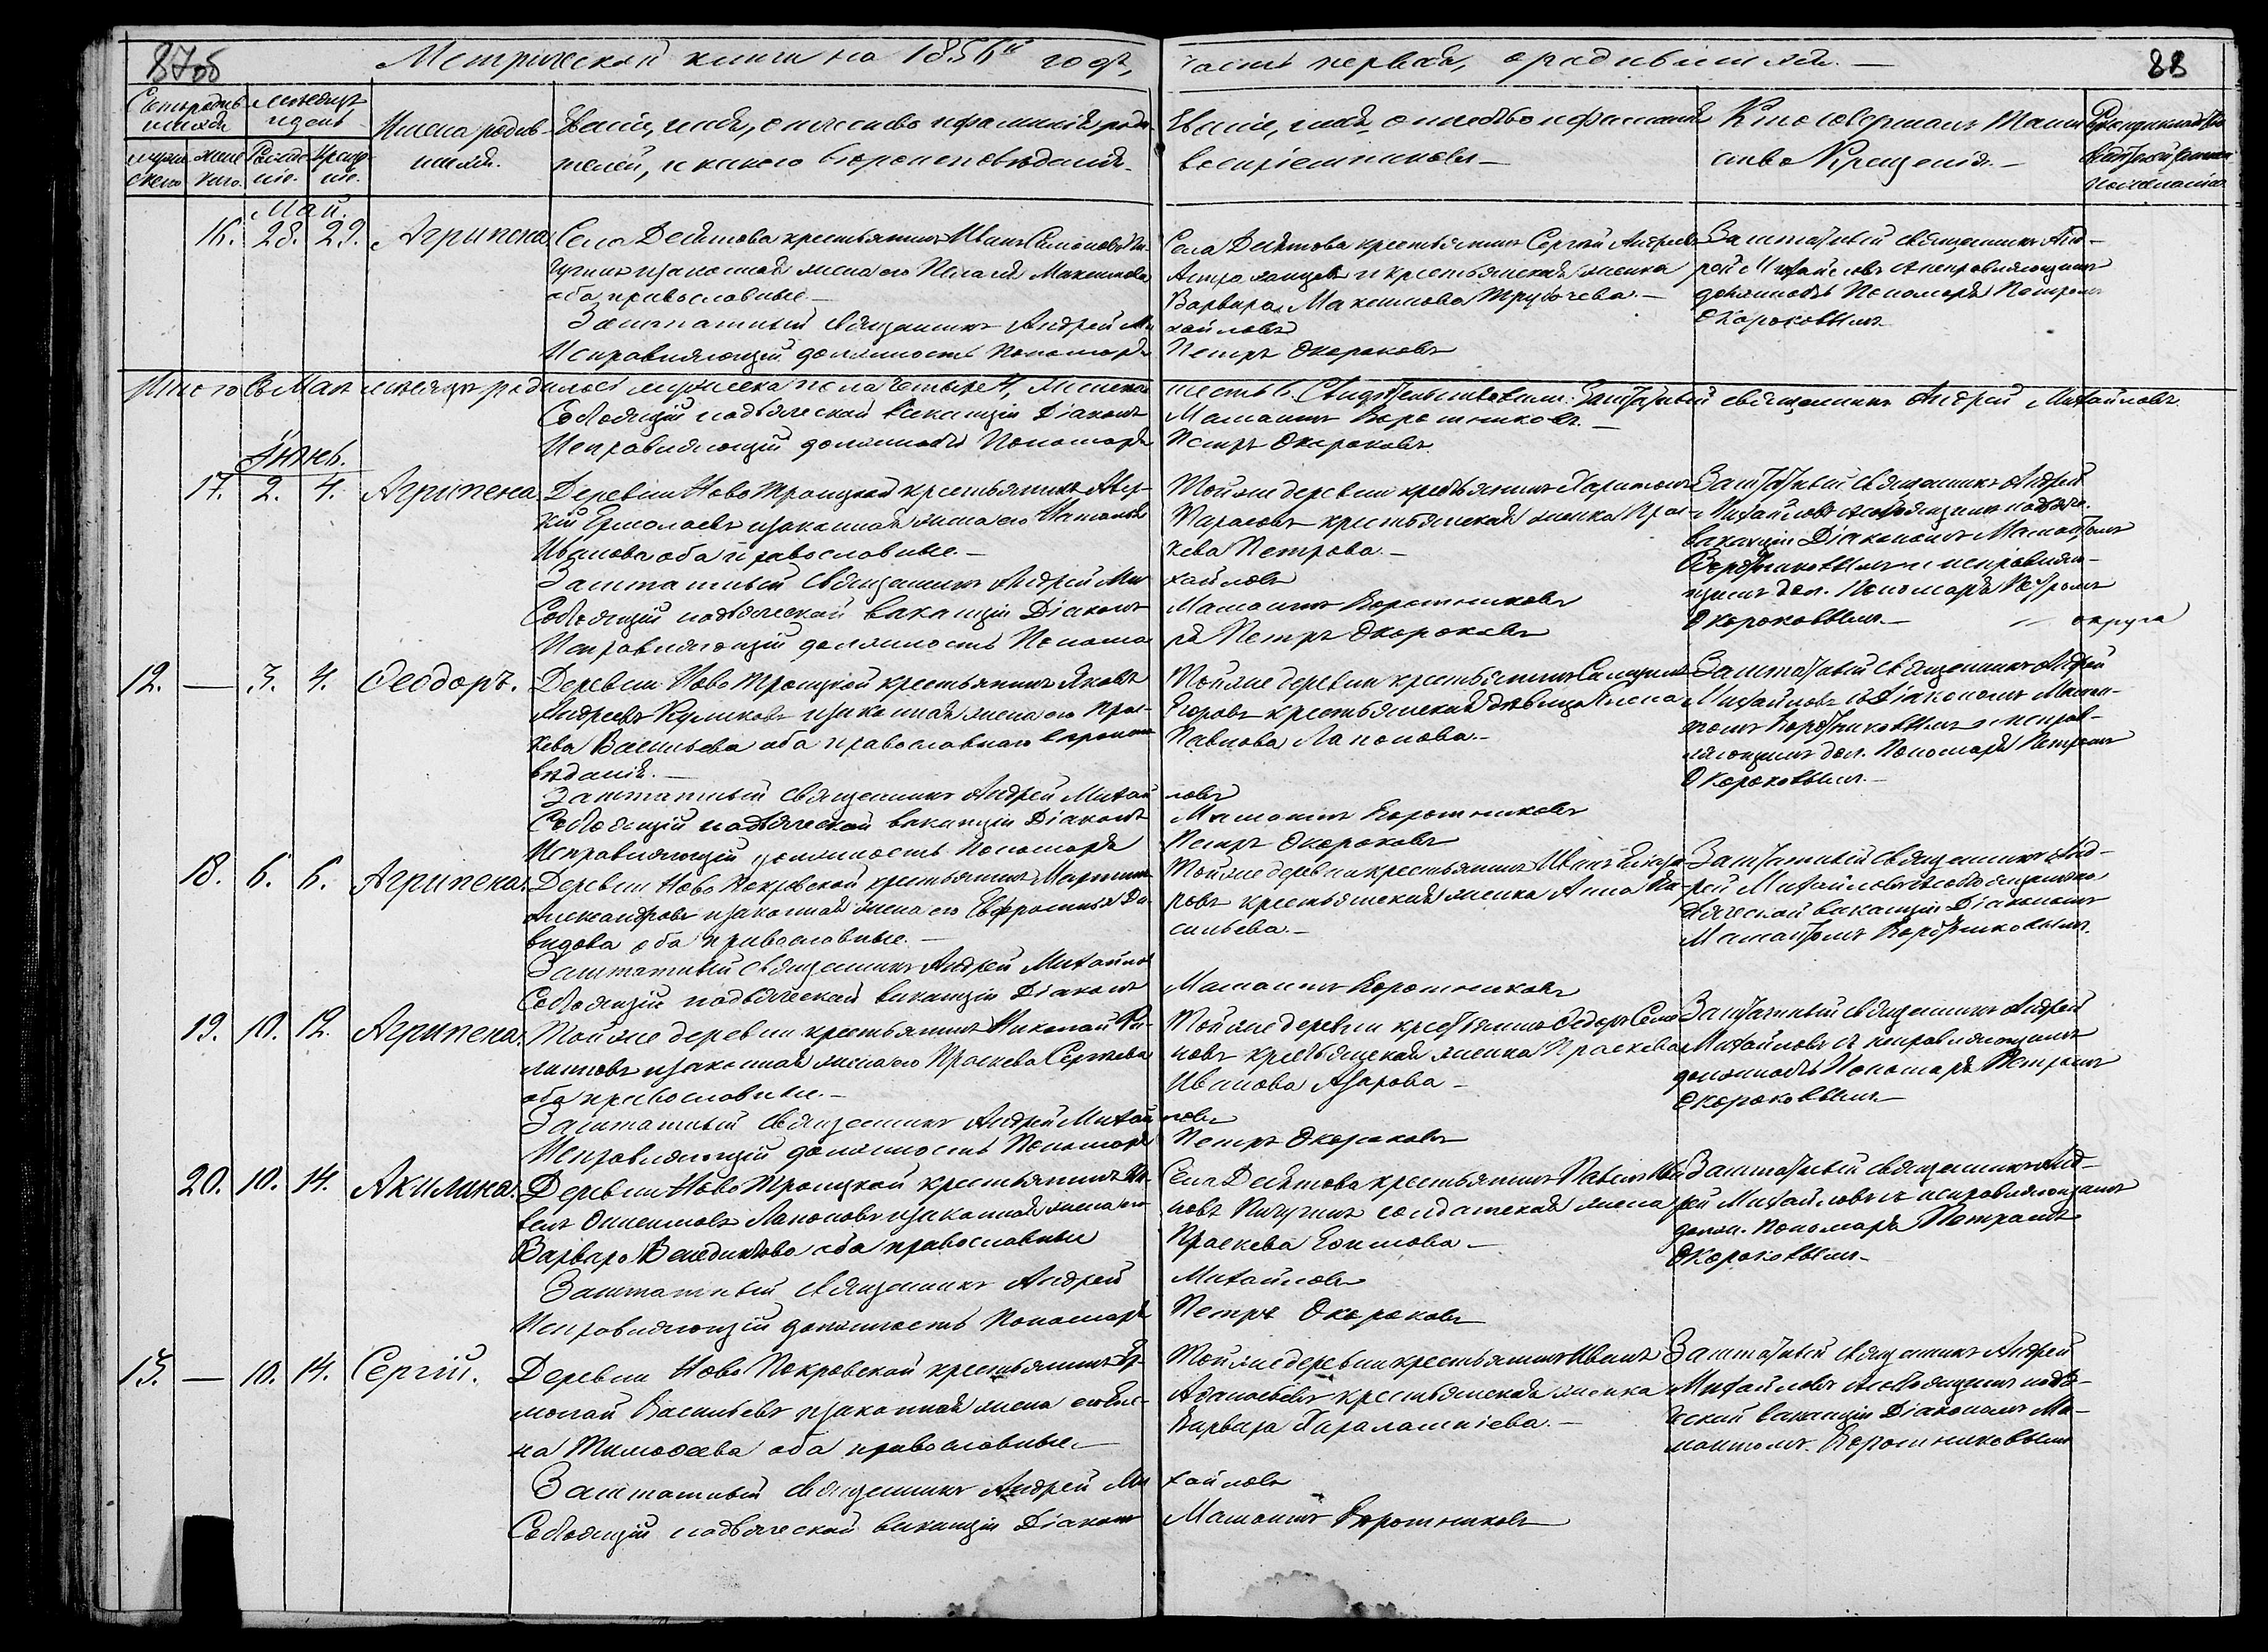 87об
Метрической книги на 1856й годъ, часть первая, о родившихся.
88
Счетъ родившихся
Месяцъ и день
Имена родившихся.
Званіе, имя, отчество и фамилія родителей, и какого вероисповѣданія.
Званіе, имя, отчество и фамилія воспріемниковъ
Кто совершалъ Таинство Крещенія.
мужескаго
женскаго
Рожденіе.
Крещеніе.
Май.
16. 28. 29. Агрипена
Села крестьянинъ Иванъ
законная жена его Максимова
оба православные.
Заштатный священникъ Андрей Ми
Исправляющій должность Пономаря
Села крестьянинъ Сергѣй Андреевъ
и крестьянская женка
Варвара Максимова
хайловъ
Петръ Окороковъ
Заштатный священникъ Анд-
рей Михайловъ съ исправляющимъ
должность Пономаря Петромъ
Окороковымъ.
Итого въ Маѣ месяцѣ родилось мужеска пола четыре 4, женска шесть 6. Свидѣтельствовали: Заштатный священникъ Андрей Михайловъ.
Состоящій на дьяческой вакансіи Діаконъ Мамонтъ Воротниковъ.
Исправляющій должность Пономаря Петръ Окороковъ.
Іюнь.
17. 2. 4. Агрипена.
Деревни Ново Троицкой крестьянинъ
Ермолаевъ законная жена его Наталья
Иванова оба православные.
Заштатный священникъ Андрей Ми
Состоящій на дьяческой вакансіи Діаконъ
Исправляющій должность Понома
Той же деревни крестьянинъ Харитонъ
крестьянская женка Прас-
кева Петрова.
хайловъ
Мамонтъ Воротниковъ
ря Петръ Окороковъ
Заштатный священникъ Андрей
Михайловъ
вакансіи Діакономъ Мамонтомъ
Воротниковымъ и исправляю-
щимъ дол. Пономаря Петромъ
Окороковымъ.
округа
12. — 3. 4. Ѳеодоръ.
Деревни Ново Троицкой крестьянинъ Яковъ
Андреевъ Куликовъ законная жена его Прас-
кева Васильева оба православнаго вероиспо
вѣданія.
Заштатный священникъ Андрей Михай
Состоящій на дьяческой вакансіи Діаконъ
Исправляющій должность Пономаря
Той же деревни крестьянинъ
Егоровъ крестьянская дѣвица
Павлова Лапонова.
ловъ
Мамонтъ Воротниковъ
Петръ Окороковъ
Заштатный священникъ Андрей
Михайловъ съ Діакономъ Мамон-
томъ Воротниковымъ и исправ-
ляющимъ дол. Пономаря Петромъ
Окороковымъ.
18. 6. 6. Агрипена.
Деревни Ново Покровской крестьянинъ Мартинъ
Александровъ законная жена его Евфросинья Да-
видова оба православные.
Заштатный священникъ Андрей Михайлов
Состоящій на дьяческой вакансіи Діаконъ
Той же деревни крестьянинъ Иванъ
крестьянская женка Анна Ва-
сильева.
Мамонтъ Воротниковъ
Заштатный священникъ Анд-
рей Михайловъ
дьяческой вакансіи Діакономъ
Мамонтомъ Воротниковымъ.
19. 10. 12. Агрипена.
Той же деревни крестьянинъ Николай Фи-
липповъ законная жена его Праскева Сергѣева
оба православные.
Заштатный священникъ Андрей Михай
Исправляющій должность Пономаря
Той же деревни крестьянинъ Ѳедоръ Семе
новъ крестьянская женка Праскева
Иванова Азарова
ловъ
Петръ Окороковъ
Заштатный священникъ Андрей
Михайловъ съ исправляющимъ
должность Пономаря Петромъ
Окороковымъ
20. 10. 14. Акилина.
Деревни Ново Троицкой крестьянинъ Па-
велъ Онисимовъ Лапоновъ законная жена его
Варвара Венедиктова оба православные
Заштатный священникъ Андрей
Исправляющій должность Пономаря
Села крестьянинъ Павелъ Ива
новъ Пичугинъ солдатская жена
Праскева Ефимова
Михайловъ
Петръ Окороковъ
Заштатный священникъ Анд-
рей Михайловъ съ исправляющимъ
должн. Пономаря Петромъ
Окороковымъ
13. — 10. 14. Сергій.
Деревни Ново Покровской крестьянинъ Ер-
молай Васильевъ законная жена его Еле-
на Тимофеева оба православные
Заштатный священникъ Андрей Ми
Состоящій на дьяческой вакансіи Діаконъ
Той же деревни крестьянинъ Иванъ
Афанасьевъ крестьянская женка
Варвара Харалампіева.
хайловъ
Мамонтъ Воротниковъ
Заштатный священникъ Андрей
Михайловъ
вакансіи Діакономъ Ма-
монтомъ Воротниковымъ